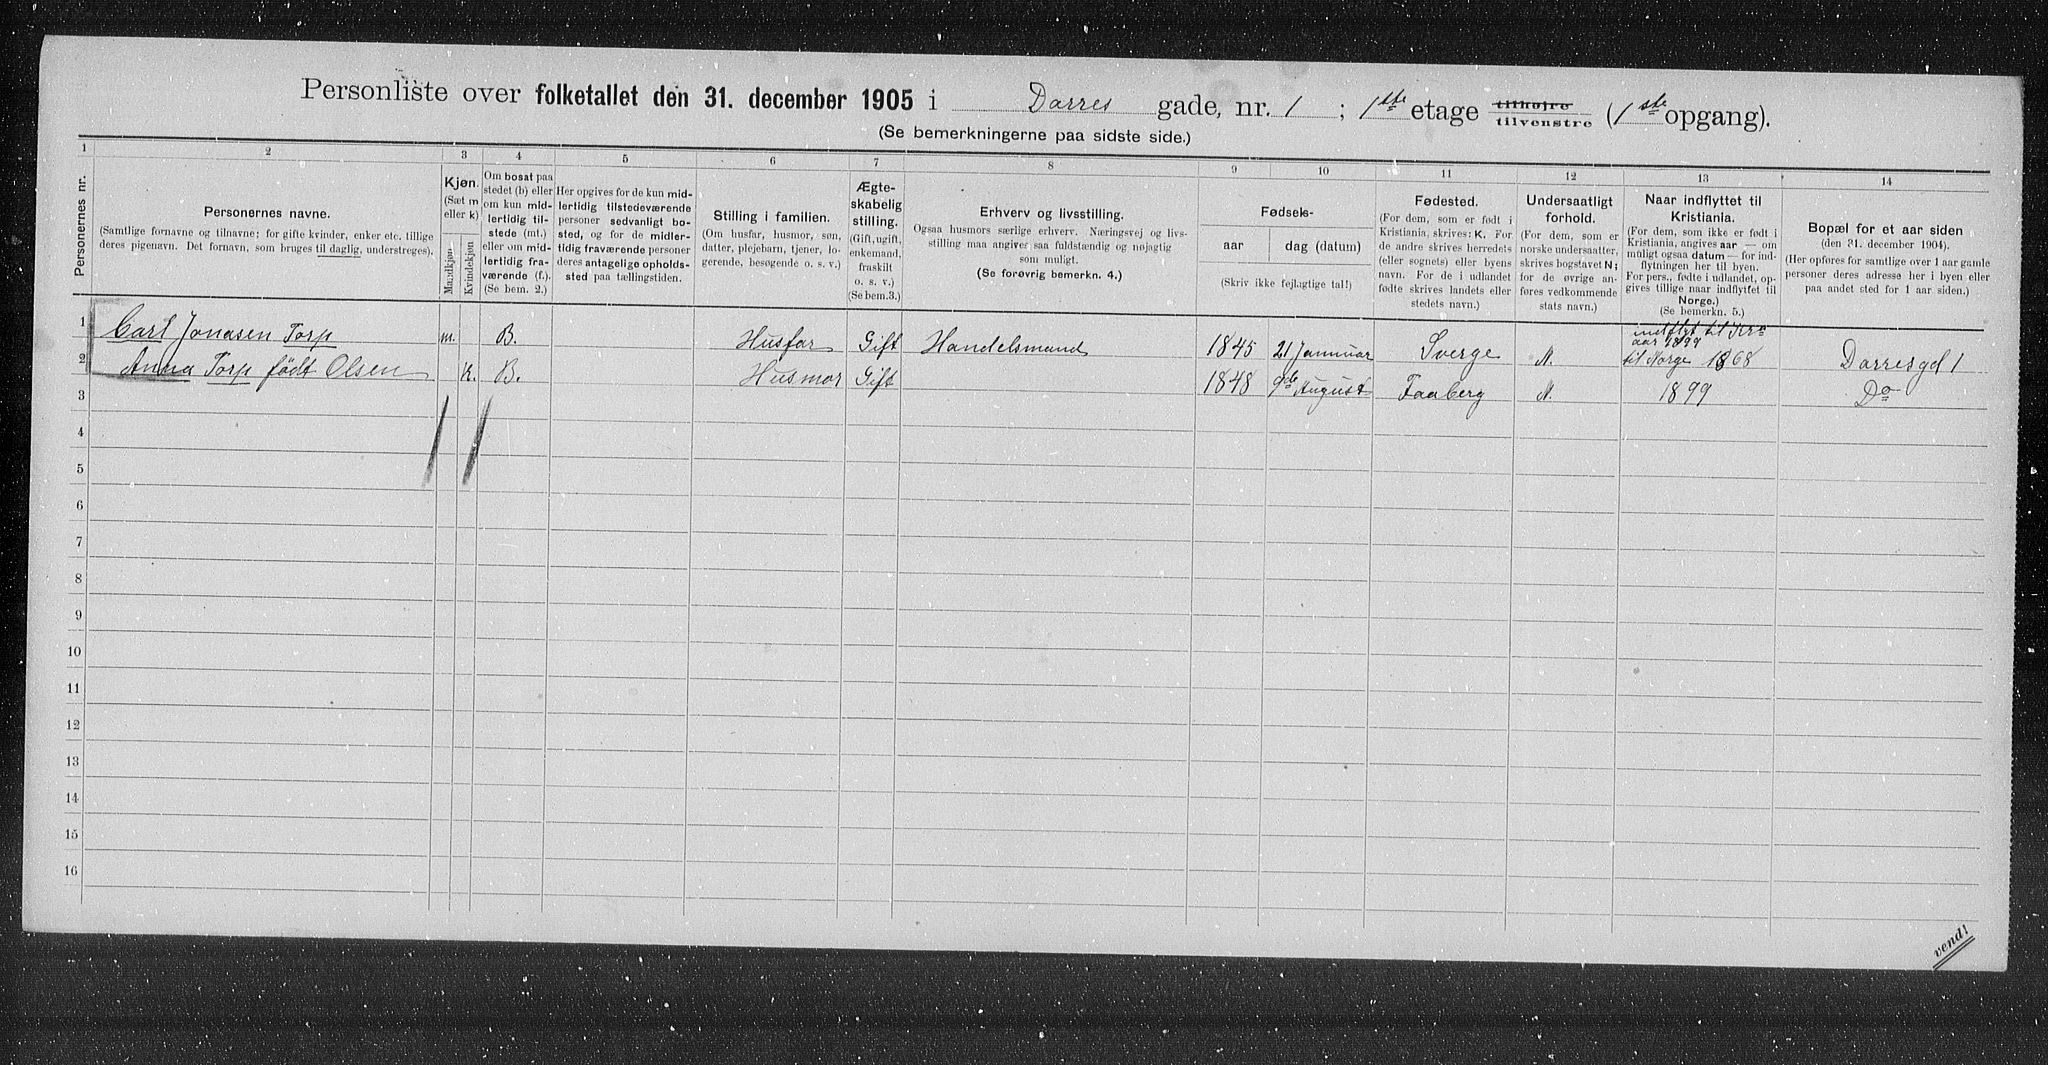 Personliste over folketallet den 31. december 1905 i Darres gade, nr. 1 ; 1ste etage tilhøjre tilvenstre (1ste opgang).
(Se bemerkningerne paa sidste side.)
1 2 3 4 5 6 7 8 9 10 11 12 13 14
Personernes nr.
Personernes navne.
(Samtlige fornavne og tilnavne; for gifte kvinder, enker etc. tillige
deres pigenavn. Det fornavn, som bruges til daglig, understreges).
Kjøn.
(Sæt m
eller k)
Mandkjøn
Kvindekjøn
Om bosat paa
stedet (b) eller
om kun mid-
lertidig til-
stede (mt.)
eller om mid-
lertidig fra-
værende (f.).
(Se bem. 2.)
Her opgives for de kun mid-
lertidig tilstedeværende
personer sedvanligt bo-
sted, og for de midler-
tidig fraværende personer
deres antagelige opholds-
sted paa tællingstiden.
Stilling i familien.
(Om husfar, husmor, søn,
datter, plejebarn, tjener, lo-
gerende, besøgende o. s. v.)
Ægte-
skabelig
stilling.
(Gift, ugift,
enkemand,
fraskilt
o. s. v.)
(Se bem.3.)
Erhverv og livsstilling.
Ogsaa husmors særlige erhverv. Næringsvej og livs-
stilling maa angives saa fuldstændig og nøjagtig
som muligt.
(Se forøvrig bemerkn. 4.)
Fødsels-
aar
dag (datum)
(Skriv ikke fejlagtige tal!)
Fødested.
(For dem, som er født i
Kristiania, skrives: K. For
de andre skrives herredets
(eller sognets) eller byens
navn. For de i udlandet
fødte skrives landets eller
stedets navn.)
Undersaatligt
forhold.
(For dem, som er
norske undersaatter,
skrives bogstavet N;
for de øvrige an-
føres vedkommende
stats navn.)
Naar indflyttet til
Kristiania.
(For dem, som ikke er født i
Kristiania, angives aar — om
muligt ogsaa datum — for ind-
flytningen her til byen.
For pers., født i udlandet, op-
gives tillige naar indflyttet til
Norge.)
(Se bemerkn. 5.)
Bopæl for et aar siden
(den 31. december 1904).
(Her opføres for samtlige over 1 aar gamle
personer deres adresse her i byen eller
paa andet sted for 1 aar siden.)
1 Carl Jonasen Torp m. B. Husfar Gift Handelsmand 1845 21 Januar Sverge N. indflyt til Kr.
aar 1899
til Norge 1868 Darresgd 1
2 Anna Torp født Olsen k. B. Husmor Gift 1848 9de August Faaberg N. 1899 Do
3
4
5
6
7
8
9
10
11
12
13
14
15
16
vend!